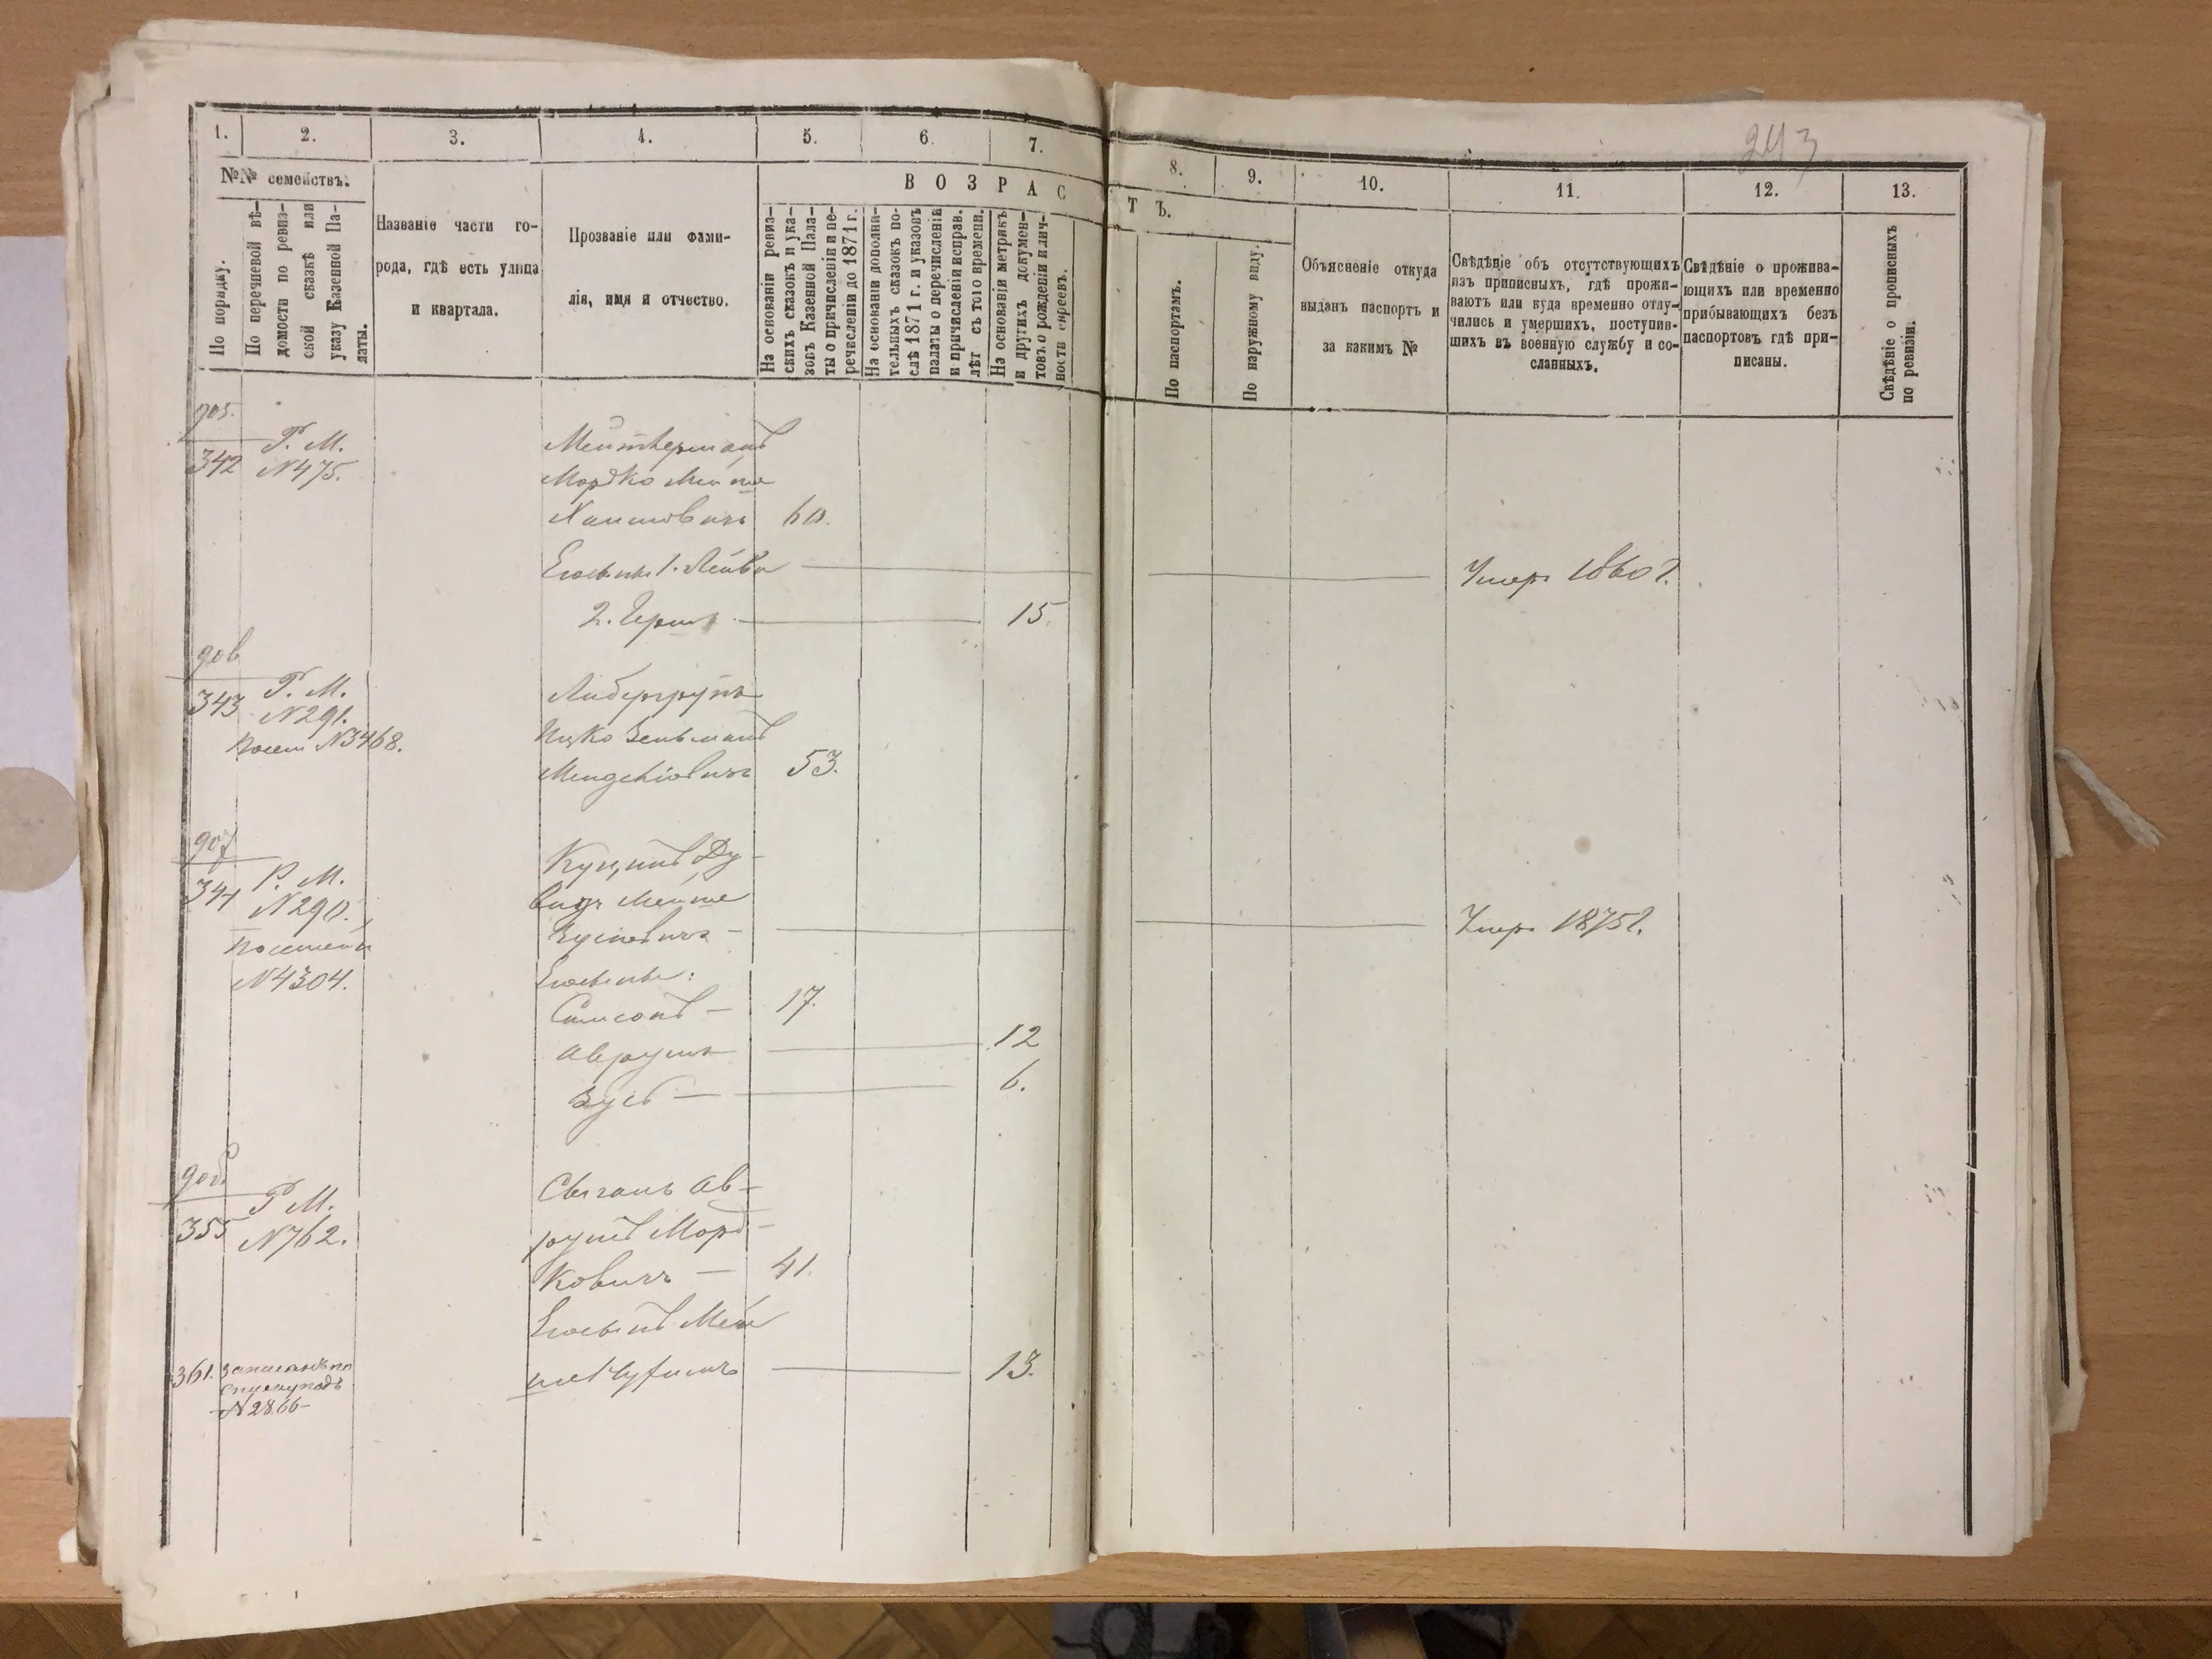 243
1. 2. 3. 4. 5. 6. 7. 8. 9. 10. 11. 12. 13.
№№ семействъ.
По порядку.
По перечневой вѣ-
домости по ревиз-
ской сказкѣ или
указу Казенной Па-
латы.
Названіе части го-
рода, гдѣ есть улица
и квартала.
Прозваніе или фами-
лія, имя и отчество.
ВОЗРАСТЪ.
На основаніи ревиз-
скихъ сказокъ и ука-
зовъ Казенной Пала-
ты о причисленіи и пе-
речисленіи до 1871 г.
На основаніи дополни-
тельныхъ сказокъ по-
слѣ 1871 г. и указовъ
палаты о перечисленіи
и причисленіи исправ.
лѣт съ того времени.
На основаніи метрикъ
и другихъ докумен-
товъ о рожденіи и лич-
ности евреевъ.
По паспортамъ.
По наружному виду.
Объясненіе откуда
выданъ паспортъ и
за какимъ №
Свѣдѣніе объ отсутствующихъ
изъ приписныхъ, гдѣ прожи-
ваютъ или куда временно отлу-
чились и умершихъ, поступив-
шихъ въ военную службу и со-
сланныхъ.
Свѣдѣніе о прожива-
ющихъ или временно
прибывающихъ безъ
паспортовъ гдѣ при-
писаны.
Свѣдѣніе о прописныхъ
по ревизіи.
905.
342 Р. М.
N 475.
Мордко
Хаимовичъ 60.
Сыновья 1. Лейба Умеръ 1860 г.
2. Гершъ 15.
906
343 Р. М.
N 291.
N 3468.
Ицко Зельманъ
53.
907
344 Р. М.
N 290.
N 4304.
Ду-
видъ
Зусевичъ Умеръ 1875 г.
Сыновья:
Самсонъ — 17.
Аврумъ 12
Зусь — 6.
908
355 Р. М.
N 762.
Ав-
румъМорд-
ковичъ — 41.
Сынъ
13.
361.
N 2866 —